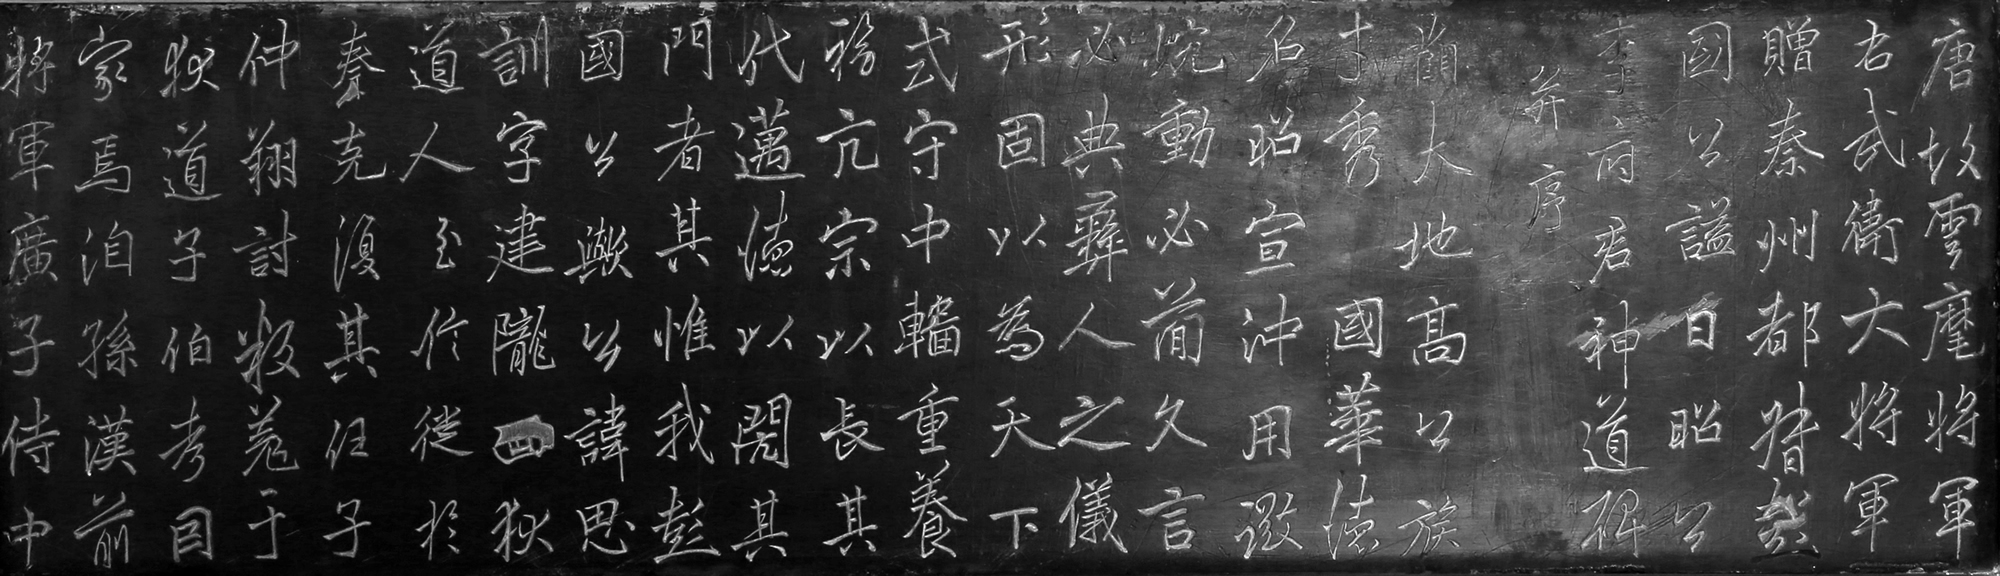 唐故雲麾將軍
右武衛大將軍
贈秦州都督彭
國公謚曰昭公
李府君神道碑
并序
觀夫地高公族
才秀國華德
名昭宣沖用微
婉動必簡久言
必典彝人之儀
形固以為天下
式守中輜重養
務亢宗以長其
代邁德以閱其
門者其惟我彭
國公歟公諱思
訓字建隴西狄
道人至信從於
秦克復其任子
仲翔討叛羌于
狄道子伯考因
家焉洎孫漢前
將軍廣子侍中